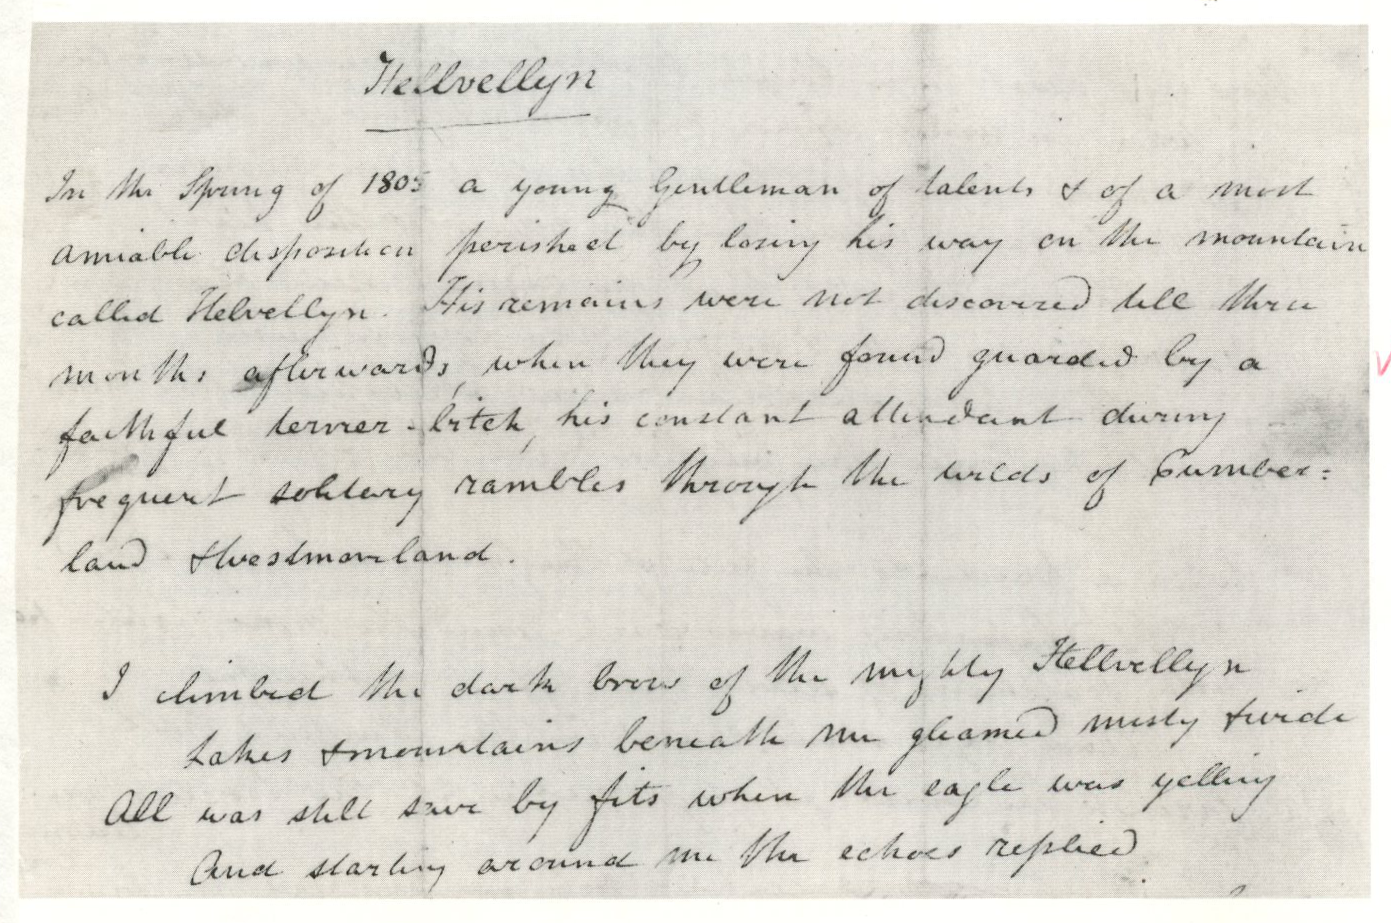 Hellvellyn
In the Spring of 1805 a young Gentleman of talents & of a most
amiable disposition perished by losing his way on the mountain
called Helvellyn. His remains were not discovered till three
months afterwards, when they were found guarded by a
faithful terrier-bitch, his constant attendant during
frequent solitary rambles through the wilds of Cumber=
land & Westmoreland.
I climbed the dark brow of the mighty Hellvellyn
Lakes & mountains beneath me gleamed misty & wide
All was still save by fits when the eagle was yelling
And starting around me the echoes replied.